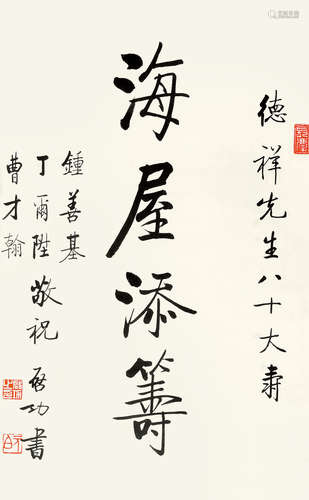 德祥先生八十大寿
海屋添籌
鍾善基
丁爾陞
曹才翰
敬祝
啓功書